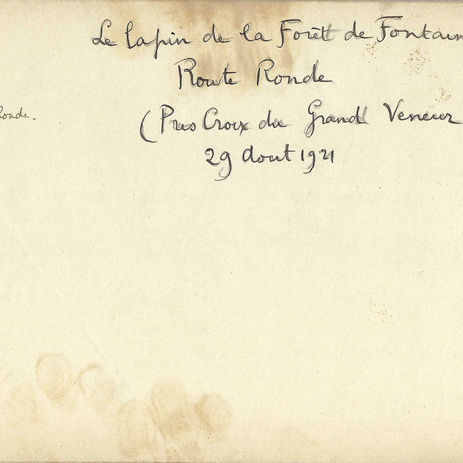 Le lapin de la Forêt de Fontain
Route Ronde
Ronde.
(Près Croix du Grand Veneur
29 Aout 1921